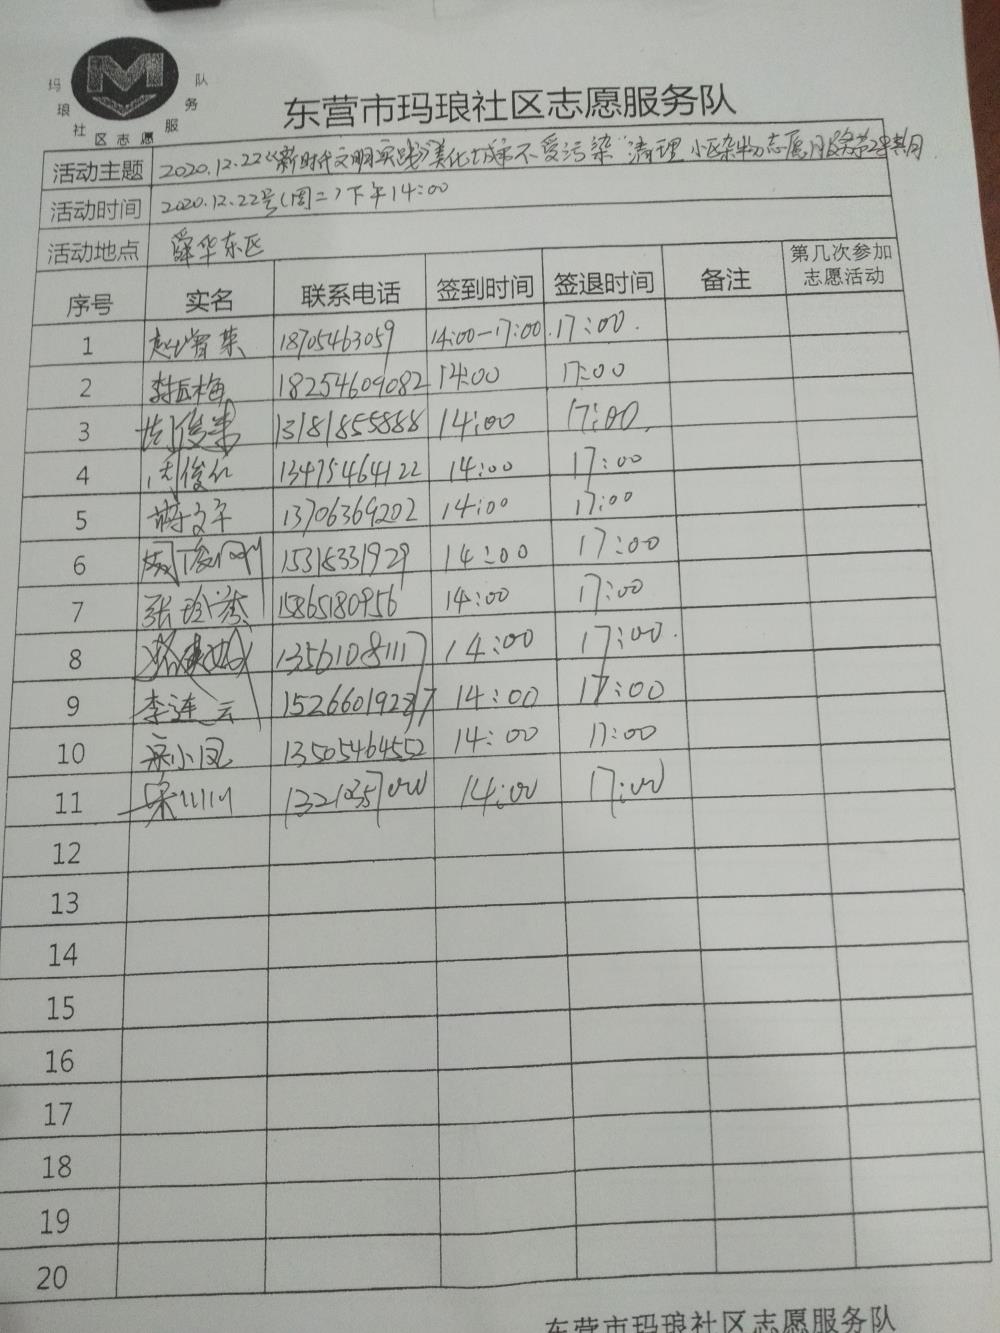 玛琅社区志愿服务队
东营市玛琅社区志愿服务队
活动主题 2020.12.22《新时代文明实践》"美化城市不受污染"清理小区杂物志愿服务
活动时间 2020.12.22号(周二)下午14:00
活动地点 舜华东区
序号 实名 联系电话 签到时间 签退时间 备注 第几次参加志愿活动
1 18705463059 14:00-17:00 17:00
2 18254609082 14:00 17:00
3 13181855888 14:00 17:00
4 13475464122 14:00 17:00
5 蒋文平 13706369202 14:00 17:00
6 15318331929 14:00 17:00
7 张珍秀 15865180956 14:00 17:00
8 13561078117 14:00 17:00
9 李连云 14:00 17:00
10 宋小凤 13505464552 14:00 17:00
11 14:00 17:00
12
13
14
15
16
17
18
19
20
东营市玛琅社区志愿服务队